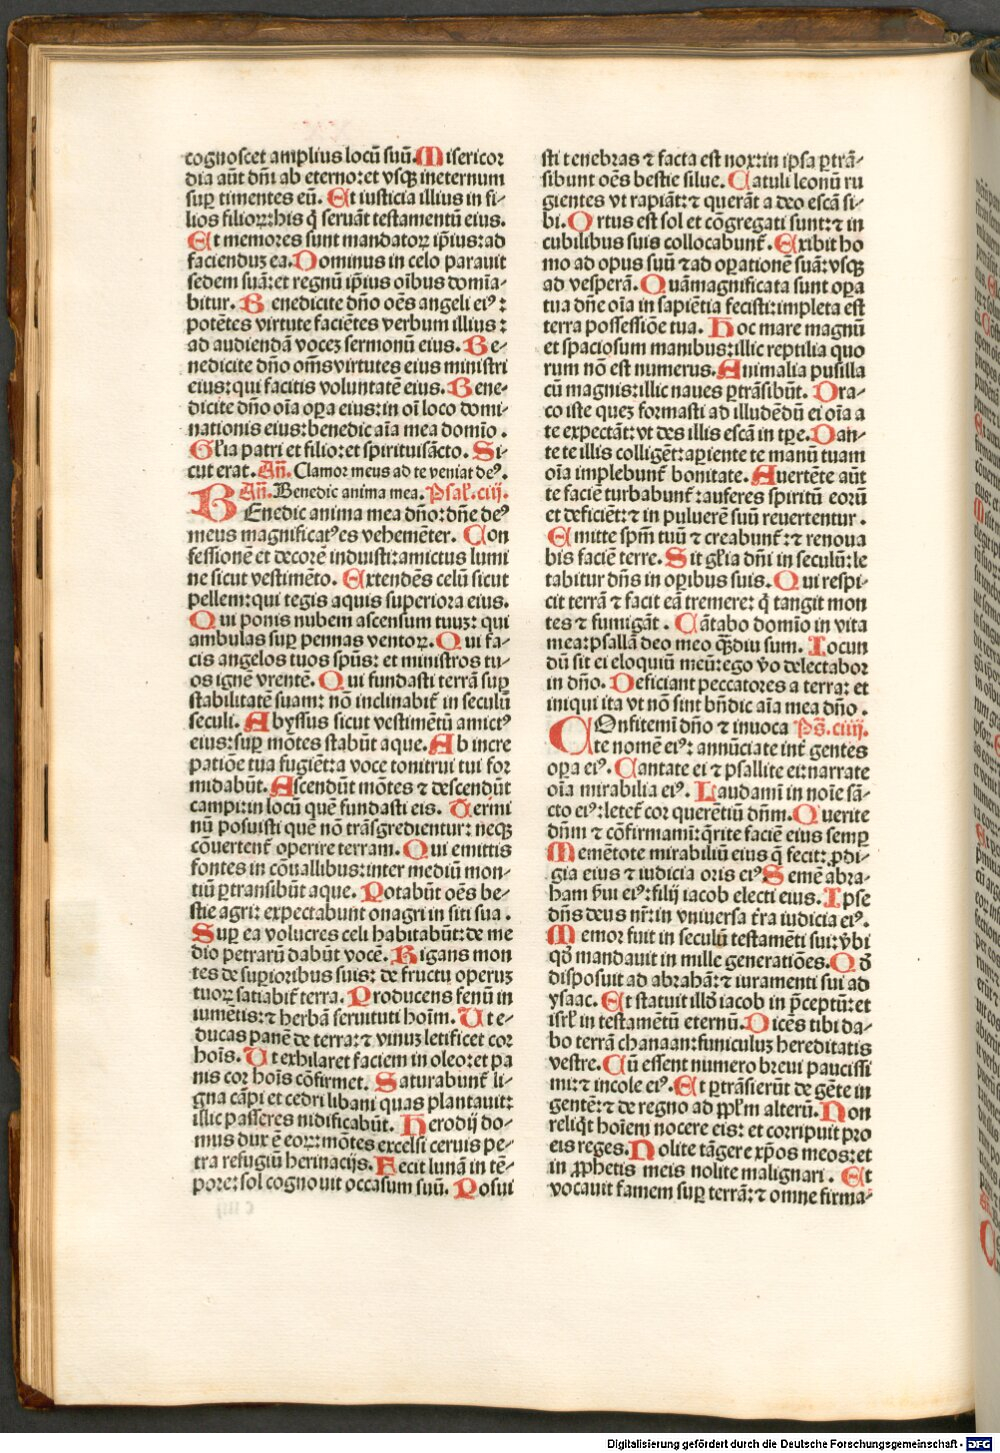 cognoscet amplius locū suū. Misericor
dia aūt dn̄i ab eterno: et vsqꝫ ineternum
suꝑ timentes eū. Et iusticia illius in fi-
lios filioꝝ: his q̄ seruāt testamentū eius.
Et memores sunt mandatoꝝ ip̄ius: ad
faciendūꝫ ea. Dominus in celo parauit
sedem suā: et regnū ip̄ius oībus domīa-
bitur. Benedicite dn̄o oēs angeli eiꝰ:
potētes virtute faciētes verbum illius:
ad audiendā voceꝫ sermonū eius. Be-
nedicite dn̄o om̄s virtutes eius ministri
eius: qui facitis voluntatē eius. Bene-
dicite dn̄o oīa oꝑa eius: in oī loco domi-
nationis eius: benedic aīa mea domīo.
Gl̄ia patri et filio: et spirituisācto. Si-
cut erat. An̄. Clamor meus ad te veniat deꝰ.
An̄. Benedic anima mea. Psal̄. ciij.
BEnedic anima mea dn̄o: dn̄e deꝰ
meus magnificatꝰ es vehemēter. Con
fessionē et decorē induisti: amictus lumi
ne sicut vestimēto. Extendēs celū sicut
pellem: qui tegis aquis superiora eius.
Qui ponis nubem ascensum tuuꝫ: qui
ambulas suꝑ pennas ventoꝝ. Qui fa-
cis angelos tuos sp̄us: et ministros tu-
os ignē vrentē. Qui fundasti terrā suꝑ
stabilitatē suam: nō inclinabit̄ in seculū
seculi. Abyssus sicut vestimētū amictꝰ
eius: suꝑ mōtes stabūt aque. Ab incre
patiōe tua fugiēt: a voce tonitrui tui for
midabūt. Ascendūt mōtes ⁊ descendūt
campi: in locū quē fundasti eis. Termi
nū posuisti quē nō trāsgredientur: neqꝫ
cōuertent̄ operire terram. Qui emittis
fontes in cōuallibus: inter mediū mon-
tiū ꝑtransibūt aque. Potabūt oēs be-
stie agri: expectabunt onagri in siti sua.
Suꝑ ea volucres celi habitabūt: de me
dio petrarū dabūt vocē. Rigans mon
tes de suꝑioribus suis: de fructu operuꝫ
tuoꝝ satiabit̄ terra. Producens fenū in
iumētis: ⁊ herbā seruituti hoīm. Ut e-
ducas panē de terra: ⁊ vinuꝫ letificet cor
hoīs. Ut exhilaret faciem in oleo: et pa
nis cor hoīs cōfirmet. Saturabunt̄ li-
gna cāpi et cedri libani quas plantauit:
illic passeres nidificabūt. Herodij do-
mus dux ē eoꝝ: mōtes excelsi ceruis pe-
tra refugiū herinacijs. Fecit lunā in tē-
pore: sol cognouit occasum suū. Posui
sti tenebras ⁊ facta est nox: in ipsa ꝑtrā-
sibunt oēs bestie silue. Catuli leonū ru
gientes vt rapiāt: ⁊ querāt a deo escā si-
bi. Ortus est sol et cōgregati sunt: ⁊ in
cubilibus suis collocabunt̄. Exibit ho
mo ad opus suū ⁊ ad oꝑationē suā: vsqꝫ
ad vesperā. Quāmagnificata sunt oꝑa
tua dn̄e oīa in sapiētia fecisti: impleta est
terra possessiōe tua. Hoc mare magnū
et spaciosum manibus: illic reptilia quo
rum nō est numerus. Animalia pusilla
cū magnis: illic naues ꝑtrāsibūt. Dra-
co iste queꝫ formasti ad illudēdū ei oīa a
te expectāt: vt des illis escā in tꝑe. Dan-
te te illis colligēt: aꝑiente te manū tuam
oīa implebunt̄ bonitate. Auertēte aūt
te faciē turbabunt̄: auferes spiritū eorū
et deficiēt: ⁊ in puluerē suū reuertentur.
Emitte sp̄m tuū ⁊ creabunt̄: ⁊ renoua
bis faciē terre. Sit gl̄ia dn̄i in seculū: le
tabitur dn̄s in oꝑibus suis. Qui respi-
cit terrā ⁊ facit eā tremere: q̄ tangit mon
tes ⁊ fumigāt. Cātabo domīo in vita
mea: psallā deo meo qꝫdiu sum. Iocun
dū sit ei eloquiū meū: ego v̄o delectabor
in dn̄o. Deficiant peccatores a terra: et
iniqui ita vt nō sint bn̄dic aīa mea dn̄o.
COnfitemī dn̄o ⁊ inuoca Ps̄. ciiij.
te nomē eiꝰ: annūciate int̄ gentes
oꝑa eiꝰ. Cantate ei ⁊ psallite ei: narrate
oīa mirabilia eiꝰ. Laudamī in noīe sā-
cto eiꝰ: letet̄ cor querētiū dn̄m. Querite
dn̄m ⁊ cōfirmamī: q̄rite faciē eius semꝑ
Memētote mirabiliū eius q̄ fecit: ꝓdi-
gia eius ⁊ iudicia oris eiꝰ Semē abra-
ham s̄ui eiꝰ: filij iacob electi eius. Ipse
dn̄s deus nr̄: in vniuersa t̄ra iudicia eiꝰ.
Memor fuit in seculū testamēti sui: v̄bi
qd̄ mandauit in mille generatiōes. Qd̄
disposuit ad abrahā: ⁊ iuramenti sui ad
ysaac. Et statuit illd̄ iacob in p̄ceptū: et
isrl̄ in testamētū eternū. Dicēs tibi da-
bo terrā chanaan: funiculuꝫ hereditatis
vestre. Cū essent numero breui paucissi
mi: ⁊ incole eiꝰ. Et ꝑtrāsierūt de gēte in
gentē: ⁊ de regno ad ppl̄m alterū. Non
reliq̄t hoīem nocere eis: et corripuit pro
eis reges. Nolite tāgere xp̄os meos: et
in ꝓphetis meis nolite malignari. Et
vocauit famem suꝑ terrā: ⁊ omne firma-
Digitalisierung gefördert durch die Deutsche Forschungsgemeinschaft - DFG